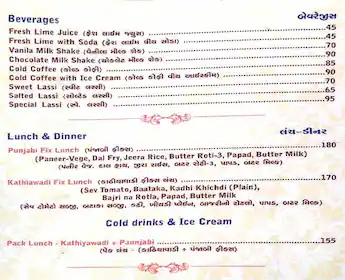 Beverages બેવરેજીસ
Fresh Lime Juice (ફ્રેશ લાઈમ જ્યુસ) 45
Fresh Lime with Soda (ફ્રેશ લાઈમ વીથ સોડા) 45
Vanila Milk Shake (વેનીલા મીલ્ક શેક) 70
Chocolate Milk Shake (ચોકલેટ મીલ્ક શેક) 90
Cold Coffee (કોલ્ડ કોફી) 85
Cold Coffee with Ice Cream (કોલ્ડ કોફી વીથ આઈસ્ક્રીમ) 90
Sweet Lassi (સ્વીટ લસ્સી) 70
Salted Lassi (સોલ્ટેડ લસ્સી) 65
Special Lassi (સ્પે. લસ્સી) 95
Lunch & Dinner લંચ-ડીનર
Punjabi Fix Lunch (પંજાબી ફીક્સ) 180
(Paneer-Vege, Dal Fry, Jeera Rice, Butter Roti-3, Papad, Butter Milk)
(પનીર વેજ, દાલ ફ્રાય, જીરા રાઈસ, બટર રોટી-૩, પાપડ, બટર મિલ્ક)
Kathiyawadi Fix Lunch (કાઠિયાવાડી ફીક્સ લંચ) 170
(Sev Tomato, Baataka, Kadhi Khichdi (Plain),
Bajri na Rotla, Papad, Butter Milk)
(સેવ ટોમેટો સબ્જી, બટાકા સબ્જી, કઢી, ખીચડી પ્લેઈન, બાજરીનો રોટલો, પાપડ, બટર મિલ્ક)
Cold drinks & Ice Cream
Pack Lunch - Kathiyawadi + Paunjabi 155
(પેક લંચ - કાઠિયાવાડી + પંજાબી ફીક્સ)